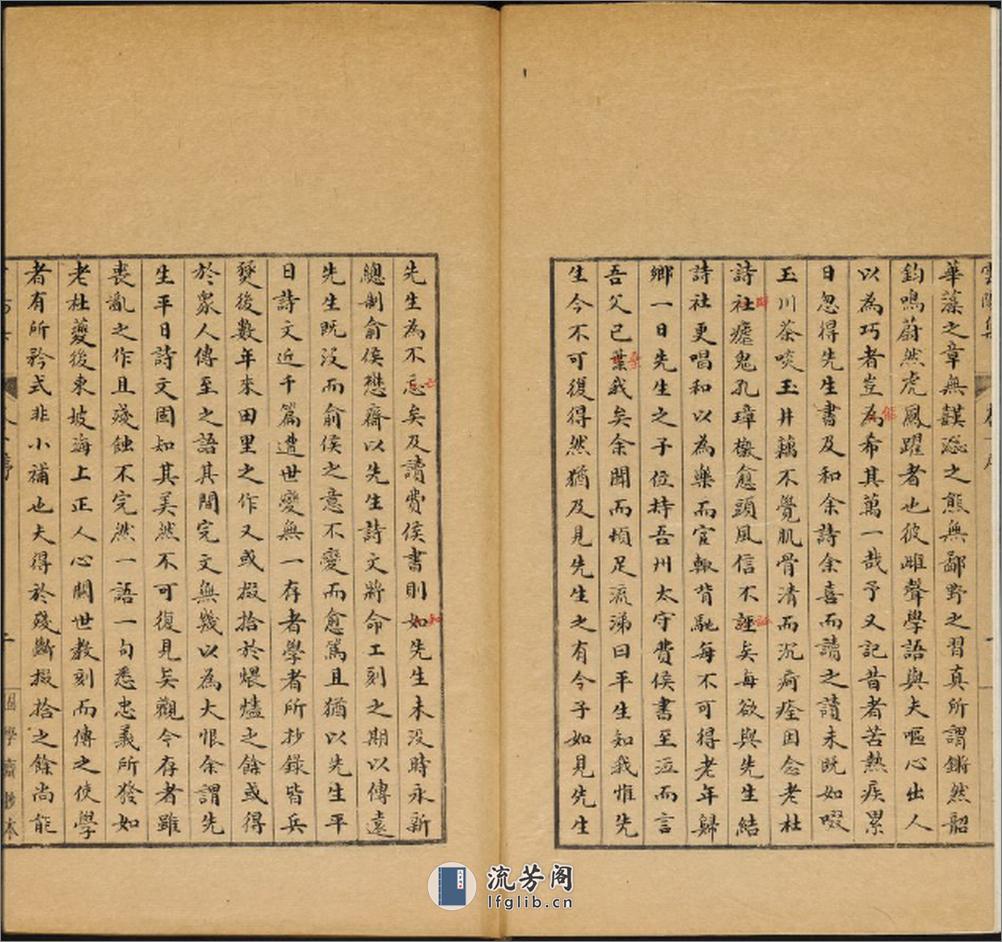 華藻之章無謨惉之態無鄙野之習真所謂鏘然韶
鈞鳴蔚然虎鳳躍者也彼雌聲學語與夫嘔心出人
以為巧者豈為希其萬一哉予又記昔者苦熱疾累
日忽得先生書及和余詩余喜而讀之讀未既如啜
玉川茶啖玉井藕不覺肌骨清而沉痾痊因念老杜
詩社瘧鬼孔璋檄愈頭風信不誣矣每欲與先生結
詩社更唱和以為樂而官轍背馳每不可得老年歸
鄉一日先生之子位持吾州太守費侯書至泣而言
吾父已葉我矣余聞而頓足流涕曰平生知我惟先
生今不可復得然猶及見先生之有今子如見先生
先生為不忘矣及讀費侯書則如先生未没時永新
總制俞侯懋齋以先生詩文將命工刻之期以傳遠
先生既没而俞侯之意不變而愈篤且猶以先生平
日詩文近千篇遭世變無一存者學者所抄錄皆兵
燹後數年來田里之作又或掇拾於煨燼之餘或得
於眾人傳至之語其間完文無幾以為大恨余謂先
生平日詩文固知其美然不可復見矣觀今存者雖
喪亂之作且殘蝕不完然一語一句悉忠義所發如
老杜夔後東坡海上正人心關世教刻而傳之使學
者有所矜式非小補也夫得於殘斷掇拾之餘尚能
學齋抄本
流芳阁
lfglib.cn